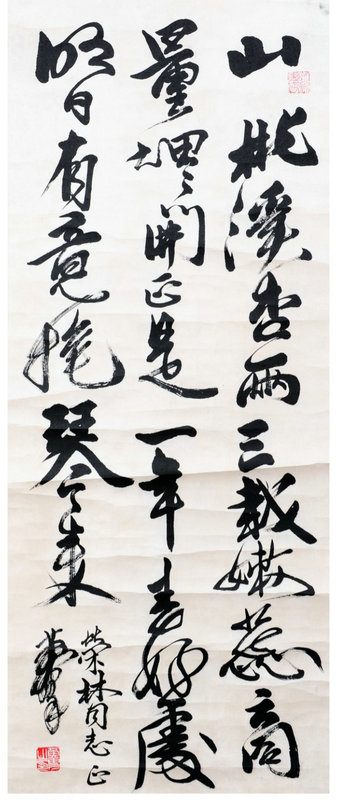 山桃溪杏兩三栽嫩蕊商
量細々開正是一年春好處
明日有意抱琴来
榮林同志正